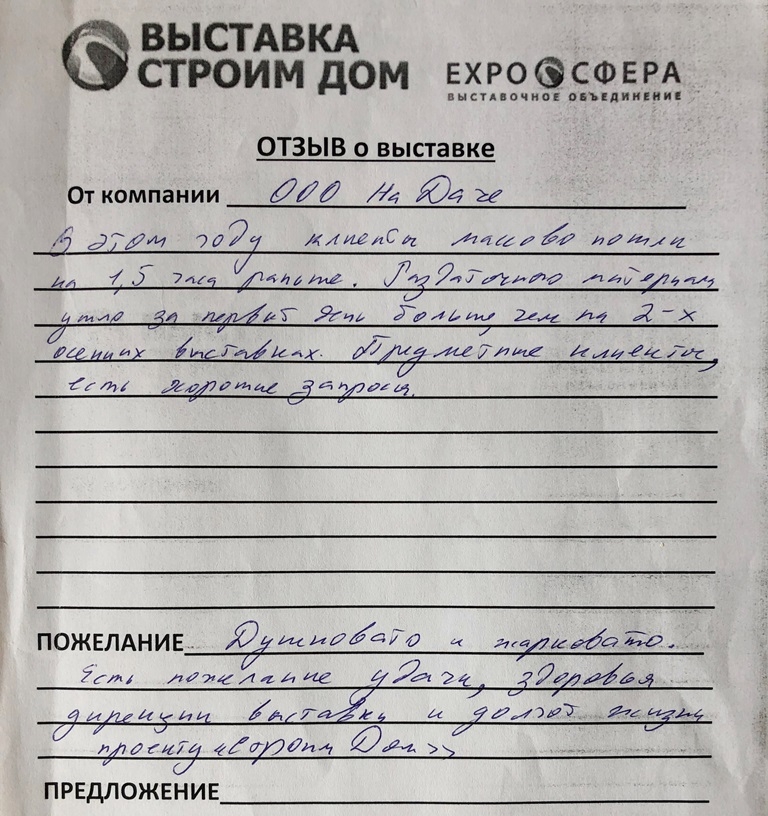 ВЫСТАВКА
СТРОИМ ДОМ
EXPO СФЕРА
ВЫСТАВОЧНОЕ ОБЪЕДИНЕНИЕ
ОТЗЫВ о выставке
От компании ООО На Даче
В этом году клиенты массово пошли
на 1,5 часа раньше. Раздаточного материала
ушло за первый день больше, чем на 2-х
осенних выставках. Предметные клиенты,
есть хорошие запросы.
ПОЖЕЛАНИЕ Душновато и жарковато.
Есть пожелание удачи, здоровья
дирекции выставки и долгой жизни
проекту «Строим Дом»
ПРЕДЛОЖЕНИЕ